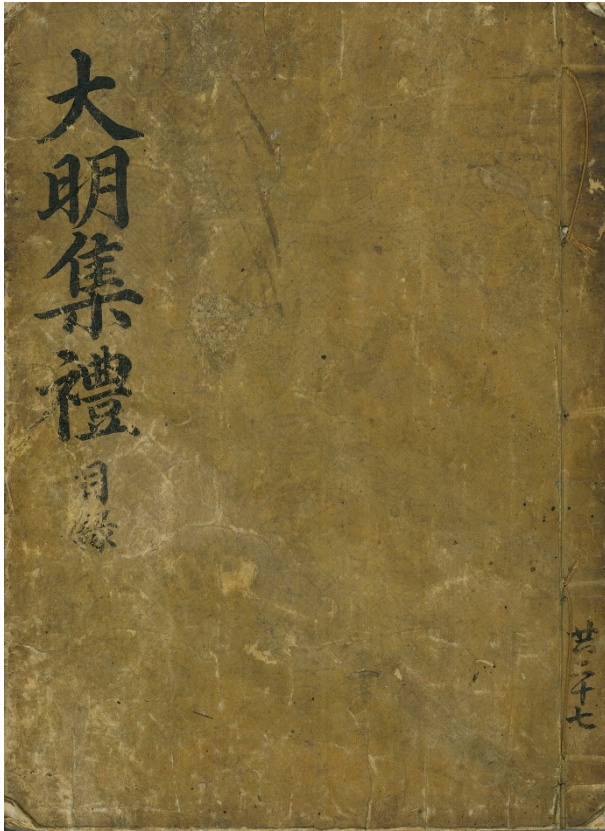 大明集禮
目錄
共二十七